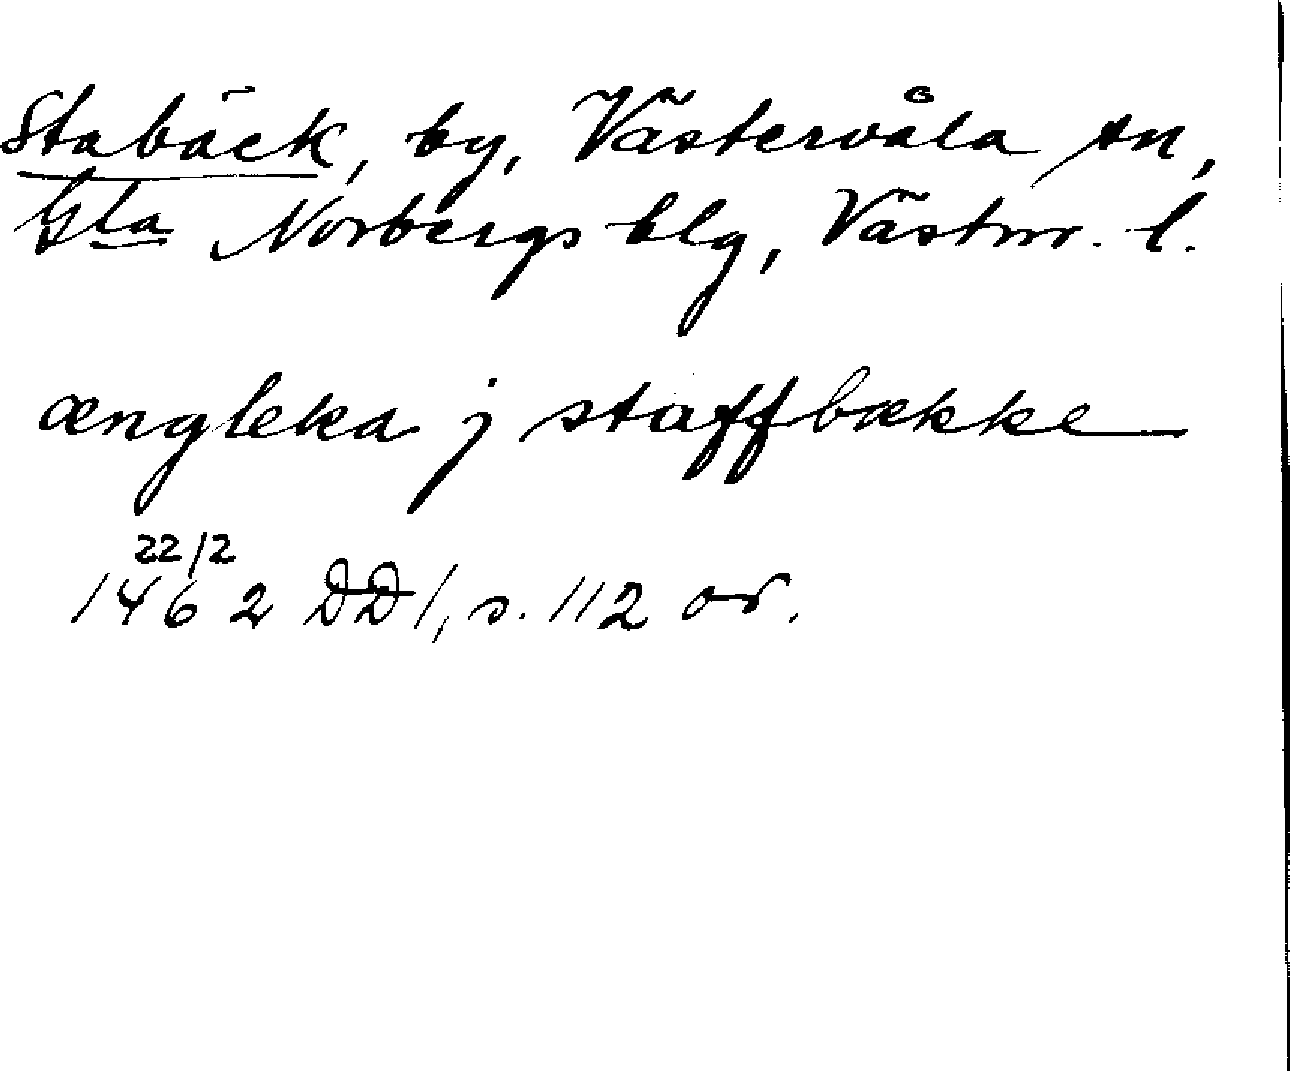 Stabäck, by, Västervåla sn,
Gla Norbergs blg, Västm. l.
ængleka j staffbække
22/2
1462 DD1, s. 112 or.